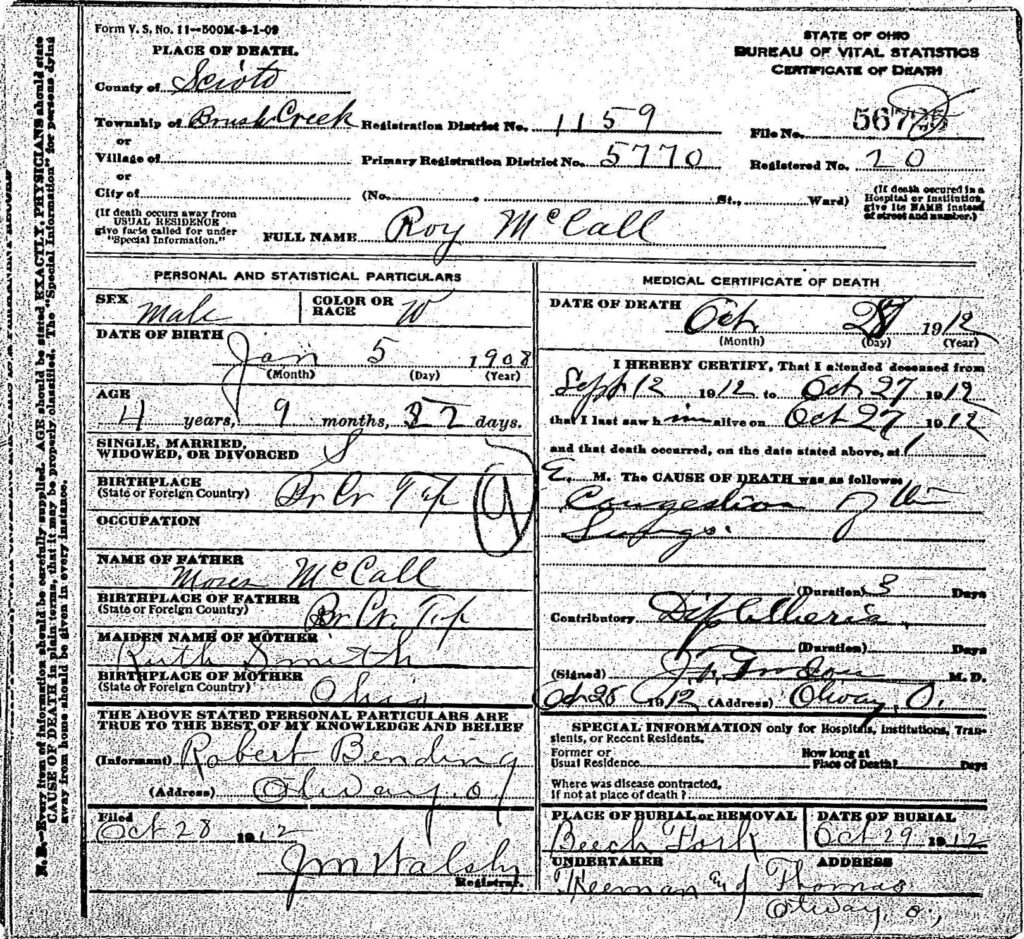 Form V. S. No. 11—500M-8-1-09
PLACE OF DEATH.
STATE OF OHIO
BUREAU OF VITAL STATISTICS
CERTIFICATE OF DEATH
County of Scioto
Township of Brush Creek Registration District No. 1159 File No. 567
or
Village of Primary Registration District No. 5770 Registered No. 20
or
City of (No. St., Ward)
(If death occured in a
Hospital or Institution,
give its NAME instead
of street and number.)
(If death occurs away from
USUAL RESIDENCE
give facts called for under
"Special Information.")
FULL NAME Roy McCall
PERSONAL AND STATISTICAL PARTICULARS
SEX Male
COLOR OR RACE W
DATE OF BIRTH
Jan 5 1908
(Month) (Day) (Year)
AGE
4 years, 9 months, 22 days.
SINGLE, MARRIED,
WIDOWED, OR DIVORCED S
BIRTHPLACE
(State or Foreign Country) Br Cr Tp
OCCUPATION
NAME OF FATHER
Moses McCall
BIRTHPLACE OF FATHER
(State or Foreign Country) Br Cr Tp
MAIDEN NAME OF MOTHER
Ruth Smith
BIRTHPLACE OF MOTHER
(State or Foreign Country) Ohio
THE ABOVE STATED PERSONAL PARTICULARS ARE
TRUE TO THE BEST OF MY KNOWLEDGE AND BELIEF
(Informant) Robert Bending
(Address) Otway, O
Filed
Oct 28 1912
J M Walsh
Registrar.
MEDICAL CERTIFICATE OF DEATH
DATE OF DEATH
Oct 1912
(Month) (Day) (Year)
I HEREBY CERTIFY, That I attended deceased from
Sept 12 1912 to Oct 27 1912
that I last saw him alive on Oct 27 1912
and that death occurred, on the date stated above, at 1
M. The CAUSE OF DEATH was as follows:
Congestion of the
Lungs.
(Duration) 3 Days
Contributory Diphtheria
(Duration) Days
(Signed) M. D.
Oct 28 1912 (Address) Otway, O.
SPECIAL INFORMATION only for Hospitals, Institutions, Tran-
sients, or Recent Residents.
Former or
Usual Residence
How long at
Place of Death? Days
Where was disease contracted,
If not at place of death?
PLACE OF BURIAL or REMOVAL
Beech Fork
DATE OF BURIAL
Oct 29 1912
UNDERTAKER
ADDRESS
Thomas
Otway, O,
N. B.—Every item of information should be carefully supplied. AGE should be stated EXACTLY. PHYSICIANS should state
CAUSE OF DEATH in plain terms, that it may be properly classified. The "Special Information" for persons dying
away from home should be given in every instance.